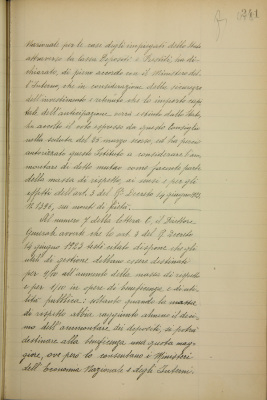 241
Nazionale per le case degli impiegati dello Stato
attraverso la Cassa Depositi e Prestiti, ha di-
chiarato, di pieno accordo con il Ministero del-
l'Interno, che in considerazione della sicurezza
dell'investimento e ritenuto che lo importo capi-
tale dell'anticipazione verrà estinto dallo Stato,
ha accolto il voto espresso da questo Consiglio
nella seduta del 24 marzo scorso, ed ha perciò
autorizzato questo Istituto a considerare l'am-
montare di detto mutuo come facente parte
della massa di rispetto, ai sensi e per gli
effetti dell'art. 3 del R. Decreto 24 giugno 1923
N. 1396, nei modi di
Al numero 7 della lettera C, il Direttore
Generale avverte che lo art. 3 del R. Decreto
24 giugno 1923 testè citato dispone che gli
utili di gestione debbano essere destinati
per 9/10 all'aumento della massa di rispetto
e per 1/10 in opere di beneficenza e di uti-
lità pubblica: soltanto quando la massa
di rispetto abbia raggiunto almeno il deci-
mo dell'ammontare dei depositi, si potrà
destinare alla beneficenza una quota mag-
giore, ove però lo consentano i Ministeri
dell'Economia Nazionale e degli Interni.